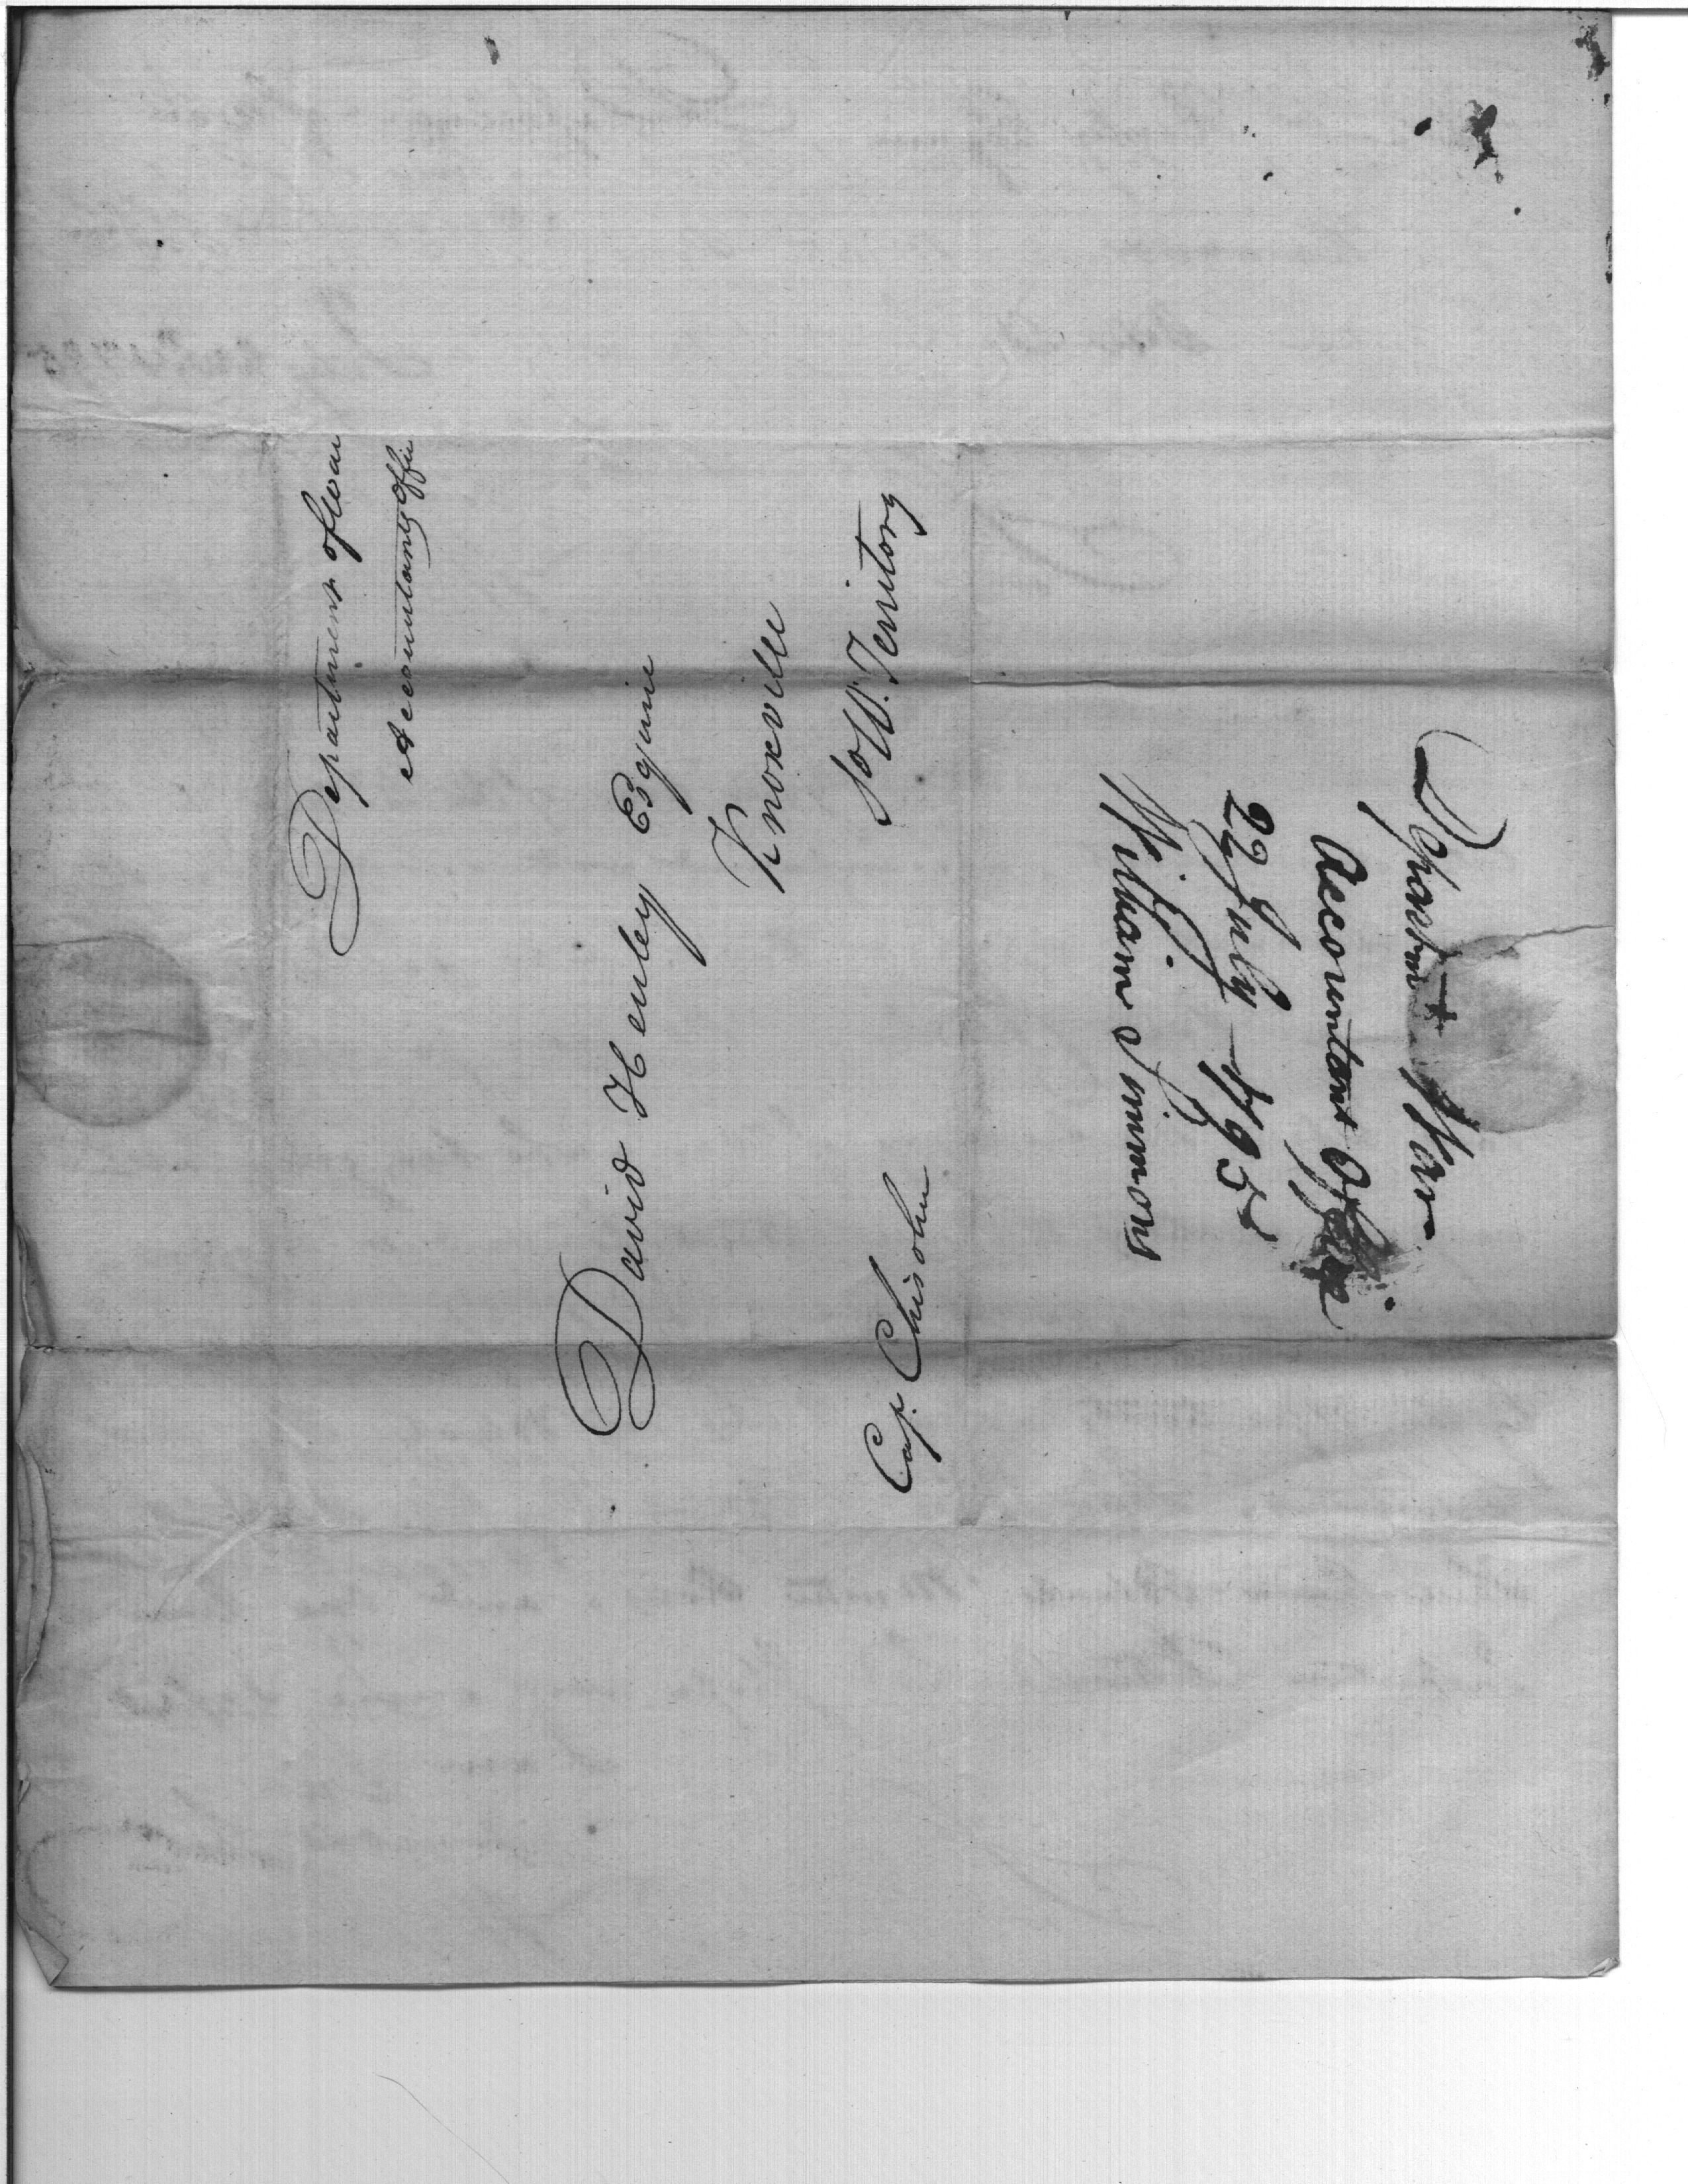 Department of War
Accountants Office
David Henley Esquire
Knoxville
So W. Territory
Cap. Chisolm
Departmt War
Accountant Office
22 July 1795
William Simmons